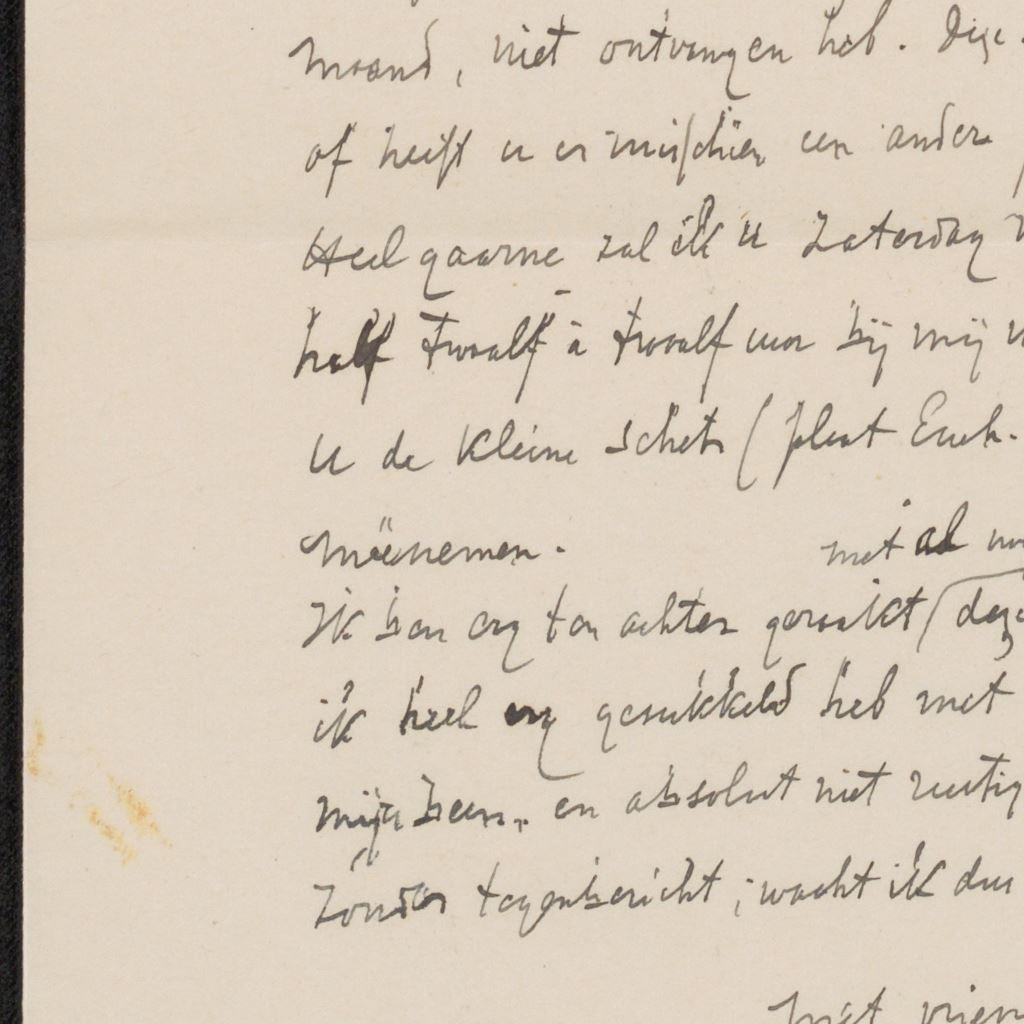 maand, niet ontvangen heb. Deze
of heeft u er misschien een andere
Heel gaarne zal ik u Zaterdag
half twaalf à twaalf uur bij mij
u de kleine schets (plint Eueh.
mëenemen.
met al
Ik ben erg ten achter geraakt (daz
ik heel erg gesukkeld heb met
mijn been, en absoluut niet rustig
Zonder tegenbericht, wacht ik dus
Met vrien